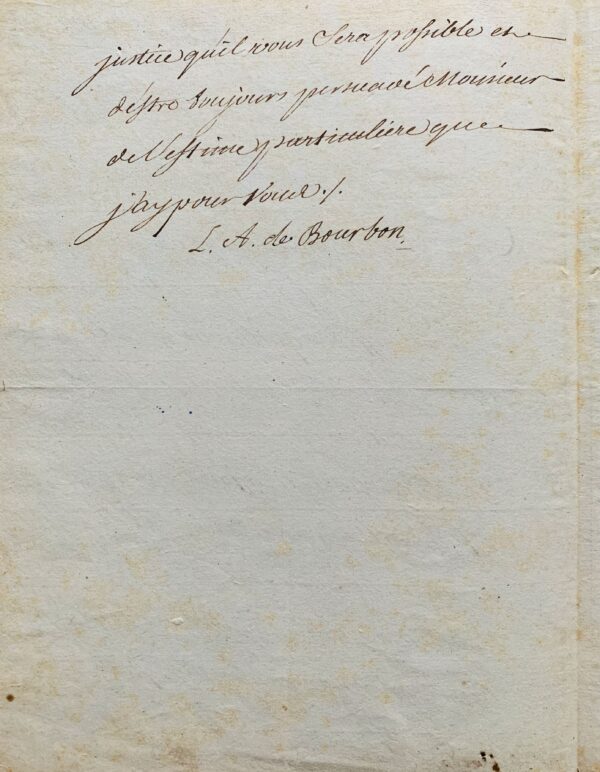 justice qu'il vous Sera possible et
d'éstre toujours persuadé Monsieur
de l'estime particuliére que
j'ay pour Vous ./.
L. A. de Bourbon